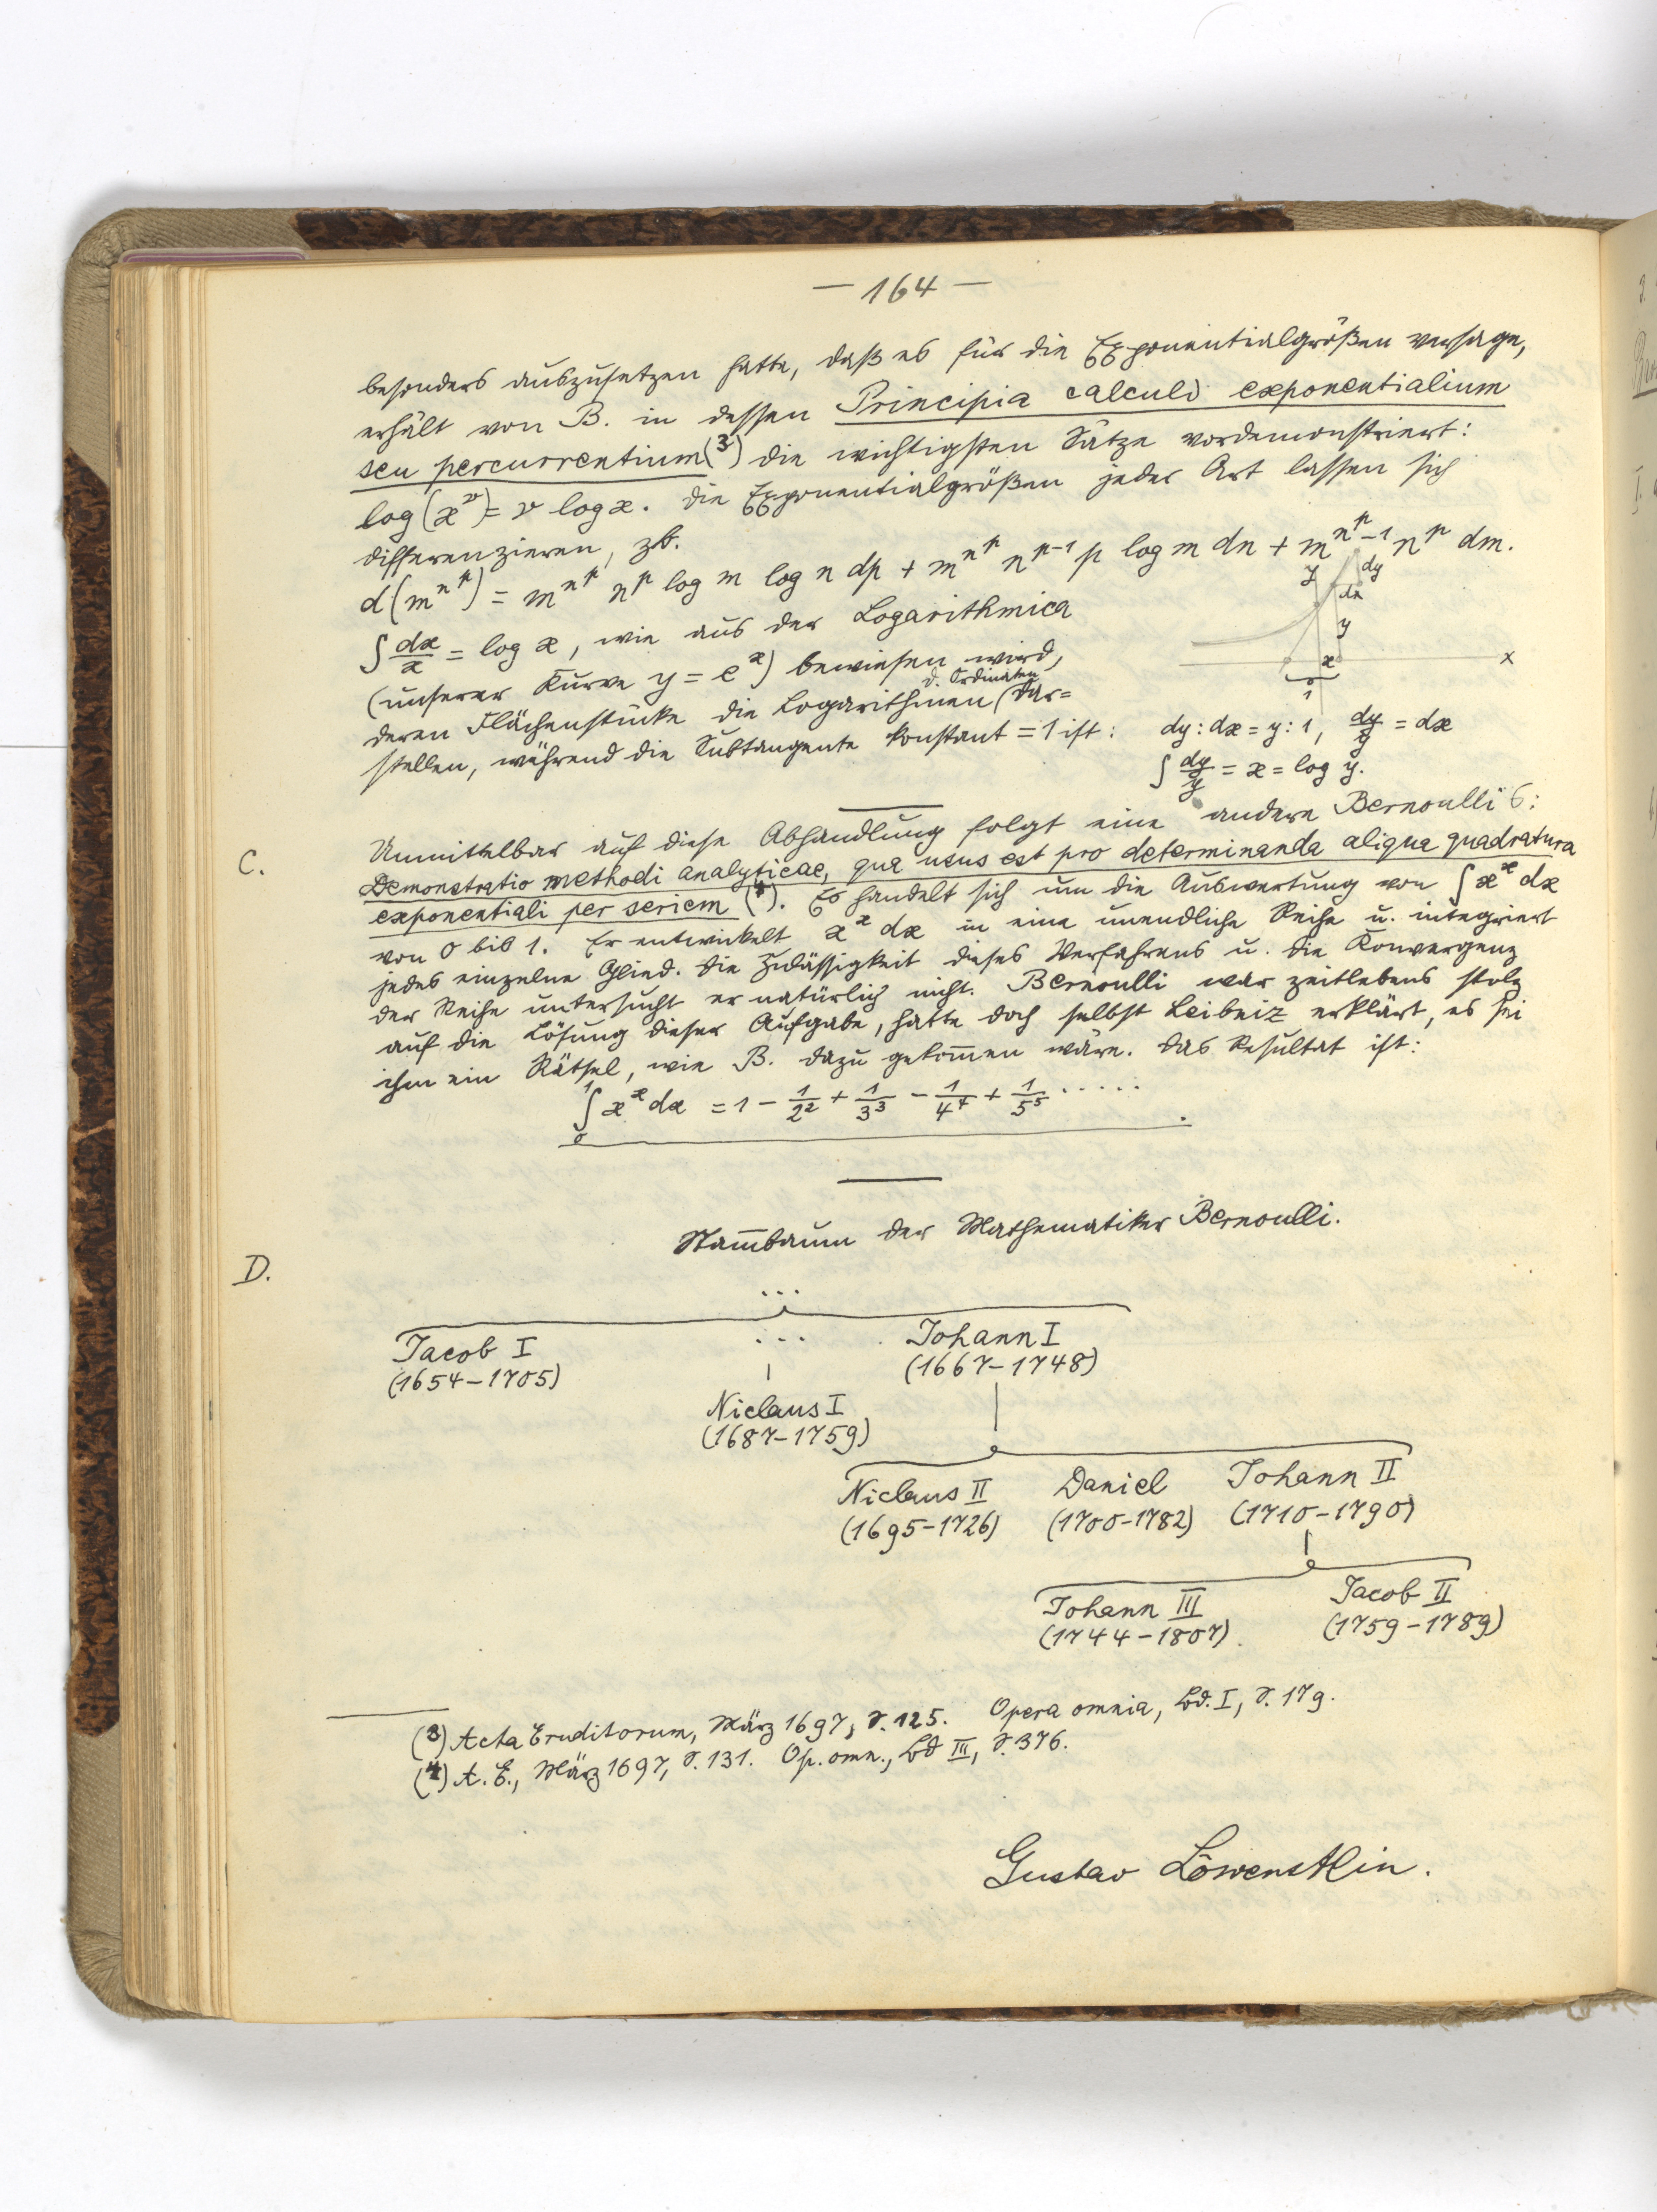 — 164 —
besonders auszusetzen hatte, daß es für die Exponentialgrößen versage,
erhält von B. in dessen Principia calculi exponentialium
seu percurrentium (3) die wichtigsten Sätze vordemonstriert:
log (x^v) = v log x. Die Exponentialgrößen jeder Art lassen sich
differenzieren, zb.
d(m^{n^p}) = m^{n^p} n^p log m log n dp + m^{n^p} n^{p-1} p log m dn + m^{n^p - 1} n^p dm.
∫ dx/x = log x, wie aus der Logarithmica
(unserer Kurve y = e^x) bewiesen wird,
d. Ordinaten
deren Flächenstücke die Logarithmen (dar=
stellen, während die Subtangente konstant = 1 ist:
y dy
dx
y
x x
1
dy : dx = y : 1, dy/y = dx
∫ dy/y = x = log y.
C. Unmittelbar auf diese Abhandlung folgt eine andere Bernoulli's:
Demonstratio methodi analyticae, qua usus est pro determinanda aliqua quadratura
exponentiali per seriem (4). Es handelt sich um die Auswertung von ∫ x^x dx
von 0 bis 1. Er entwickelt x^x dx in eine unendliche Reihe u. integriert
jedes einzelne Glied. Die Zulässigkeit dieses Verfahrens u. die Konvergenz
der Reihe untersucht er natürlich nicht. Bernoulli war zeitlebens stolz
auf die Lösung dieser Aufgabe, hatte doch selbst Leibniz erklärt, es sei
ihm ein Rätsel, wie B. dazu gekom̄en wäre. Das Resultat ist:
∫₀¹ x^x dx = 1 − 1/2² + 1/3³ − 1/4⁴ + 1/5⁵ . . . . .
D. Stam̄baum der Mathematiker Bernoulli.
...
Jacob I ... Johann I
(1654–1705) (1667–1748)
Niclaus I
(1687–1759)
Niclaus II Daniel Johann II
(1695–1726) (1700–1782) (1710–1790)
Johann III Jacob II
(1744–1807). (1759–1789)
(3) Acta Eruditorum, März 1697, S. 125. Opera omnia, Bd. I, S. 179.
(4) A. E., März 1697, S. 131. Op. omn., Bd III, S. 376.
Gustav Löwenstein.